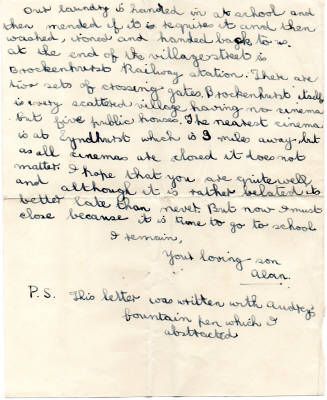 Our laundry is handed in at school and
then mended if it is require it and then
washed, ironed and handed back to us.
at the end of the village street is
Brockenhurst Railway station. There are
two sets of crossing gates. Brockenhurst itself
is every scattered village, having no cinema
but five public houses. The nearest cinema
is at Lyndhurst which is miles away, but
as all cinemas are closed it does not
matter. I hope that you are quite well
and although it is rather belated its
better late than never. But now I must
close because it is time to go to school
I remain,
Your loving son
Alan.
P.S. This letter was written with Audrey's
fountain pen which I
abstracted